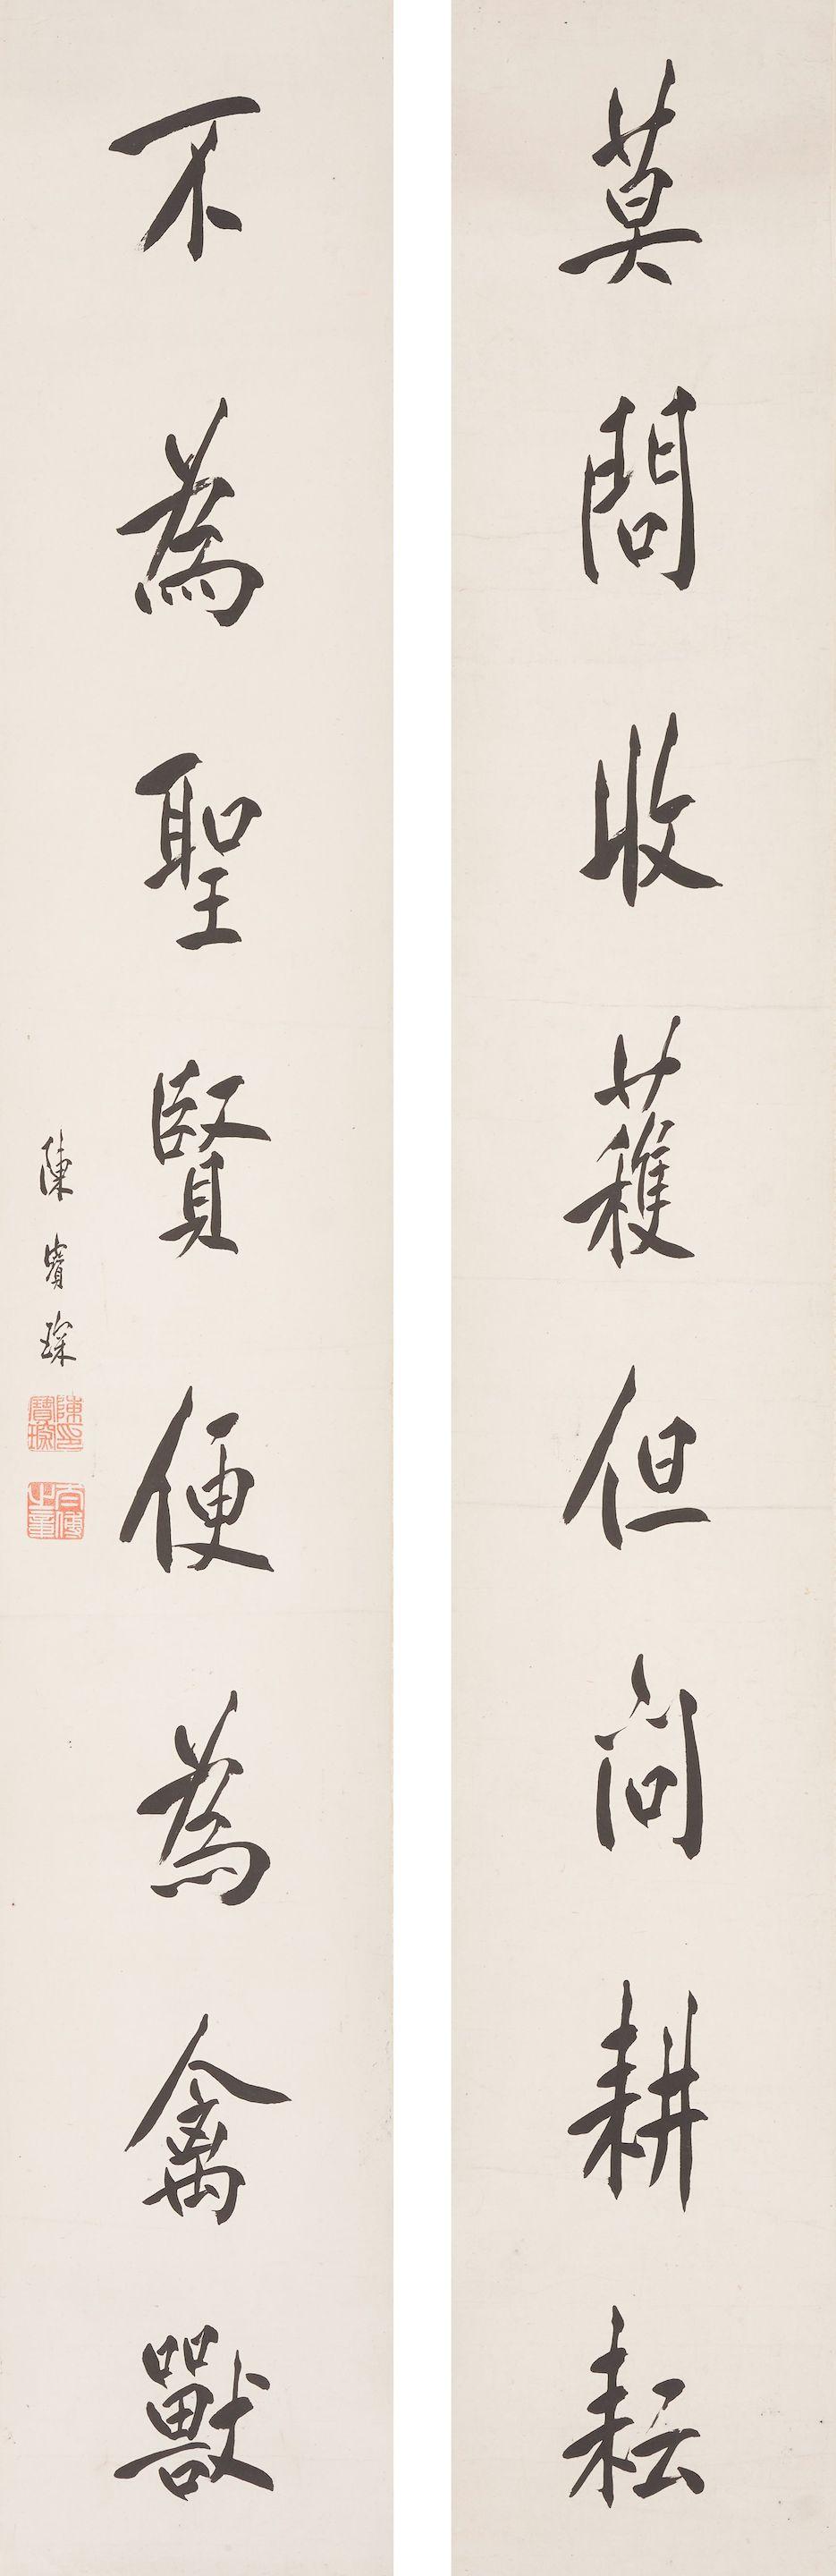 莫問收穫但問耕耘
不為聖賢便為禽獸
陳寶琛
陳印寶琛
太傅之章